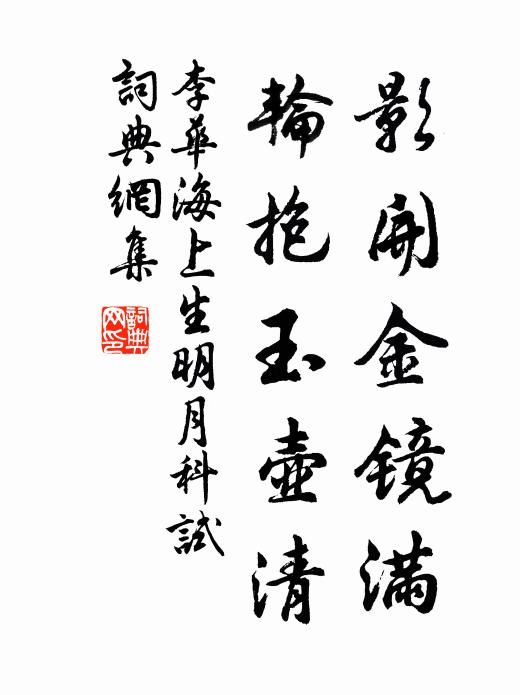 影開金鏡滿
輪抱玉壺清
李華海上生明月科試
詞典網集
詞典网印